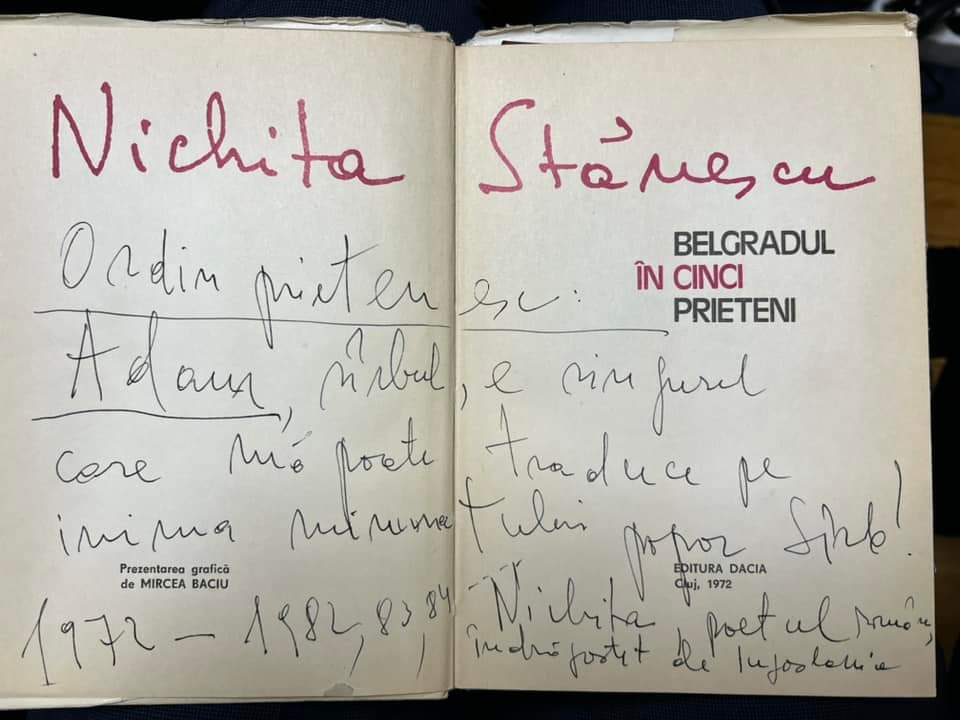 Nichita Stănescu
BELGRADUL
ÎN CINCI
PRIETENI
Ordin prietenesc:
Adam, sîrbul, e singurul
care mă poate traduce pe
inima minunatului popor Sîrb!
Prezentarea grafică
de MIRCEA BACIU
EDITURA DACIA
Cluj, 1972
1972 – 1982, 83, 84
Nichita, poetul român,
îndrăgostit de Iugoslavia